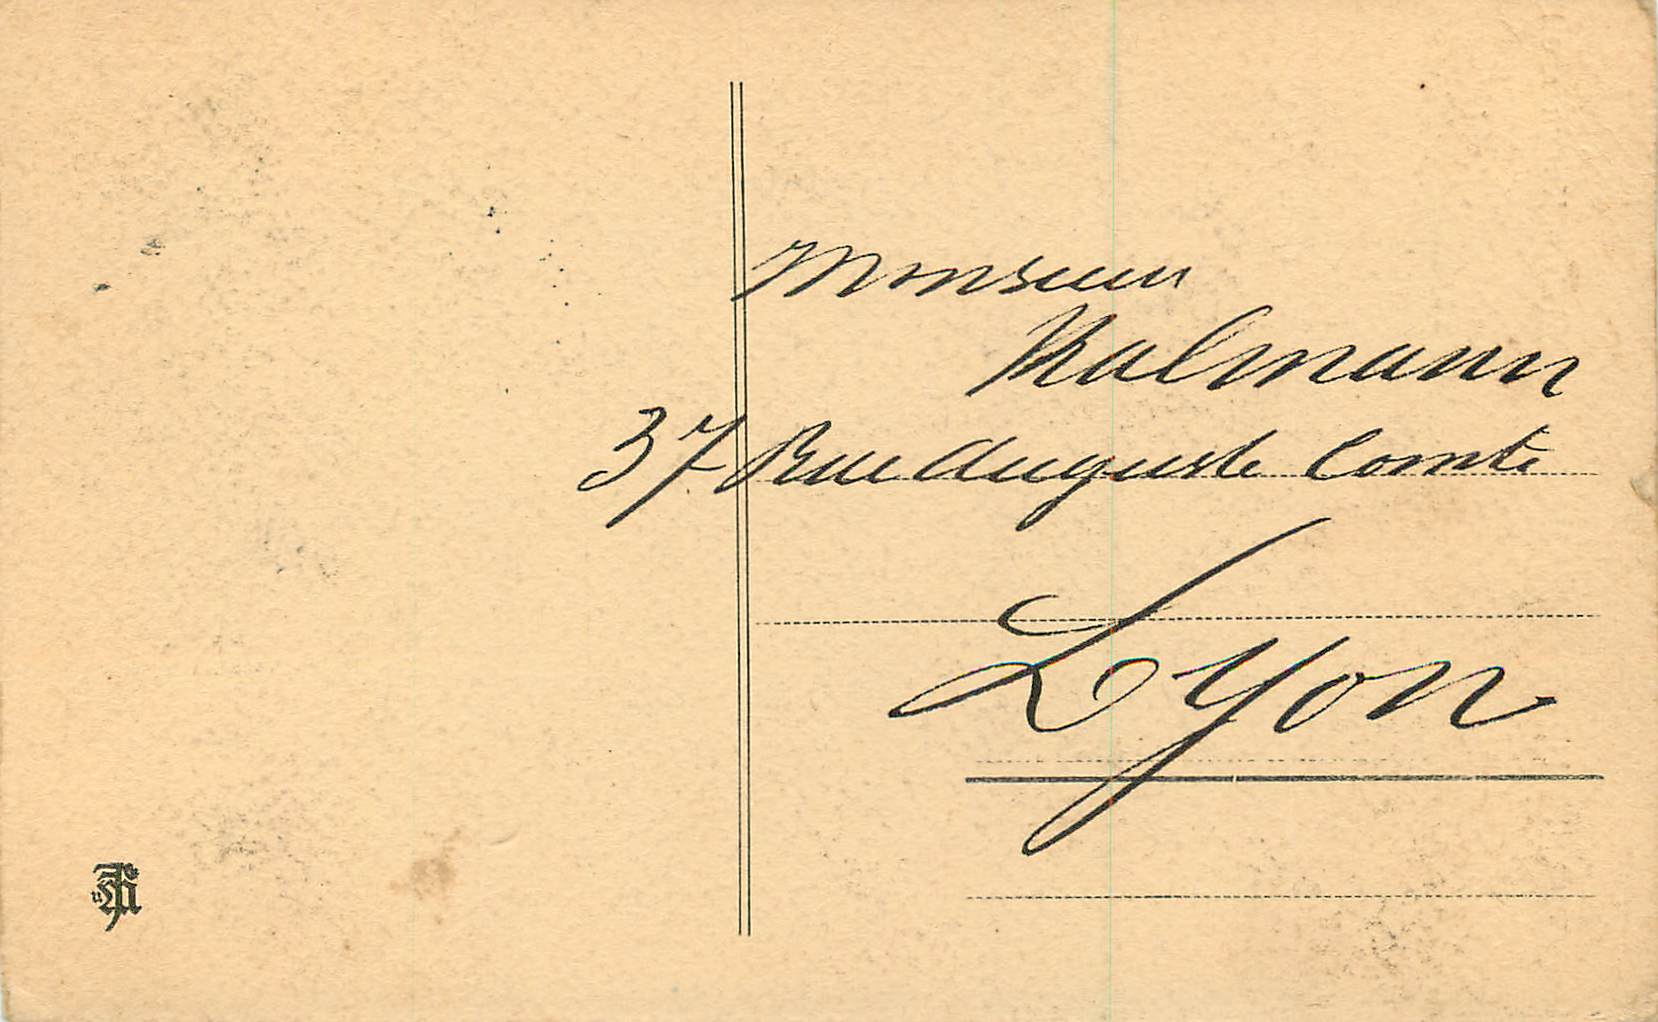 Monsieur
Kalmann
37 Rue Auguste Comte
Lyon